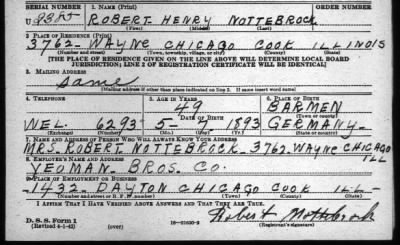 SERIAL NUMBER 1. NAME (Print) ORDER NUMBER
U ROBERT HENRY NOTTEBROCK
(First) (Middle) (Last)
2. PLACE OF RESIDENCE (Print)
3762 - WAYNE CHICAGO COOK ILLINOIS
(Number and street) (Town, township, village, or city) (County) (State)
[THE PLACE OF RESIDENCE GIVEN ON THE LINE ABOVE WILL DETERMINE LOCAL BOARD
JURISDICTION; LINE 2 OF REGISTRATION CERTIFICATE WILL BE IDENTICAL]
3. MAILING ADDRESS
Same
[Mailing address if other than place indicated on line 2. If same insert word same]
4. TELEPHONE 5. AGE IN YEARS 6. PLACE OF BIRTH
49 BARMEN
DATE OF BIRTH (Town or county)
WEL. 6293 5- 7 1893 GERMANY
(Exchange) (Number) (Mo.) (Day) (Yr.) (State or country)
7. NAME AND ADDRESS OF PERSON WHO WILL ALWAYS KNOW YOUR ADDRESS
MRS. ROBERT NOTTEBROCK - 3762 - WAYNE CHICAGO
ILL
8. EMPLOYER'S NAME AND ADDRESS
YEOMAN BROS. CO.
9. PLACE OF EMPLOYMENT OR BUSINESS
1432 - DAYTON CHICAGO COOK ILL -
(Number and street or R. F. D. number) (Town) (County) (State)
I AFFIRM THAT I HAVE VERIFIED ABOVE ANSWERS AND THAT THEY ARE TRUE.
D. S. S. Form 1
(Revised 4-1-42) (over) 16-21630-2 Robert Nottebrock
(Registrant's signature)